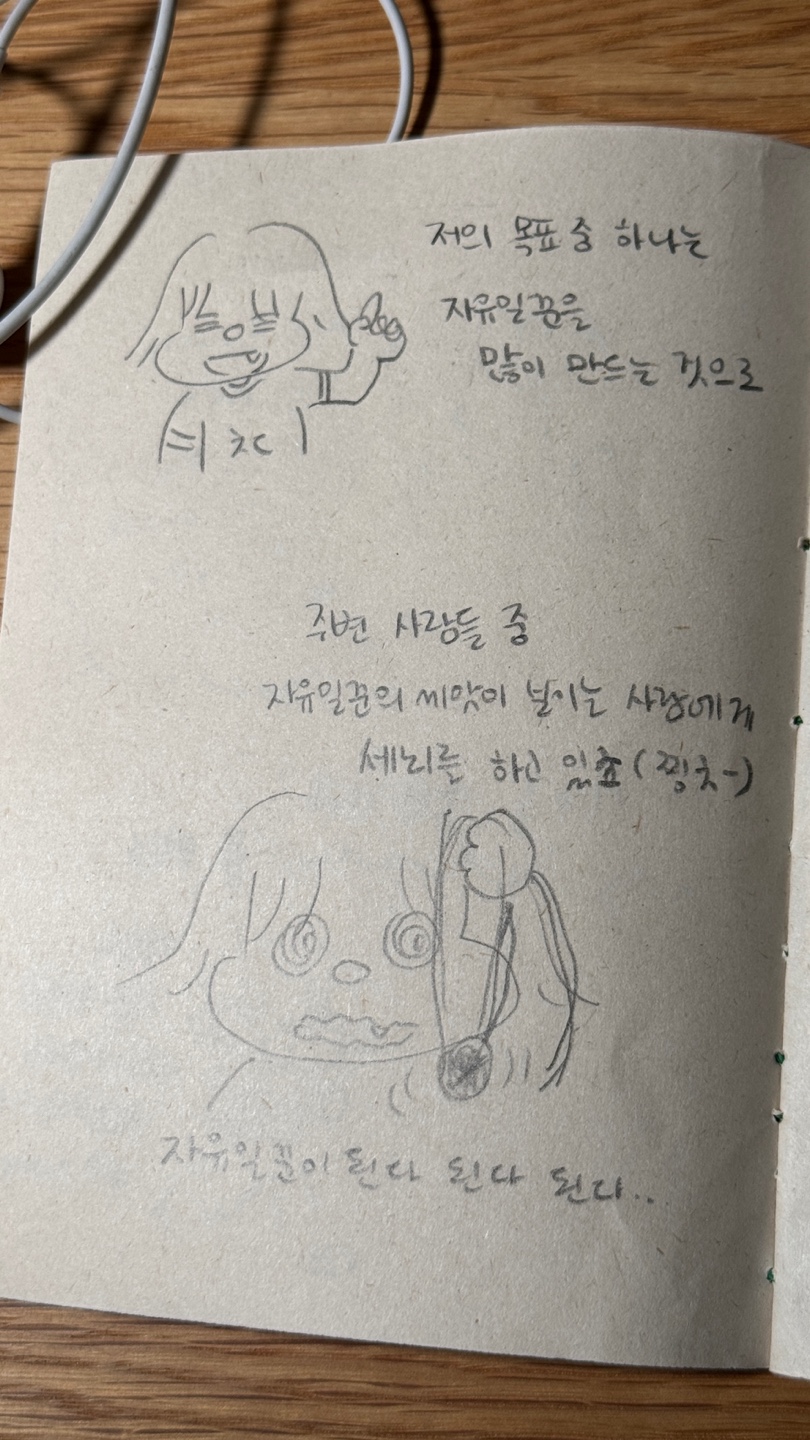 저의 목표 중 하나는
자유일꾼을
많이 만드는 것으로
주변 사람들 중
자유일꾼의 씨앗이 보이는 사람에게
세뇌를 하고 있죠 (찡긋-)
자유일꾼이 된다 된다 된다..